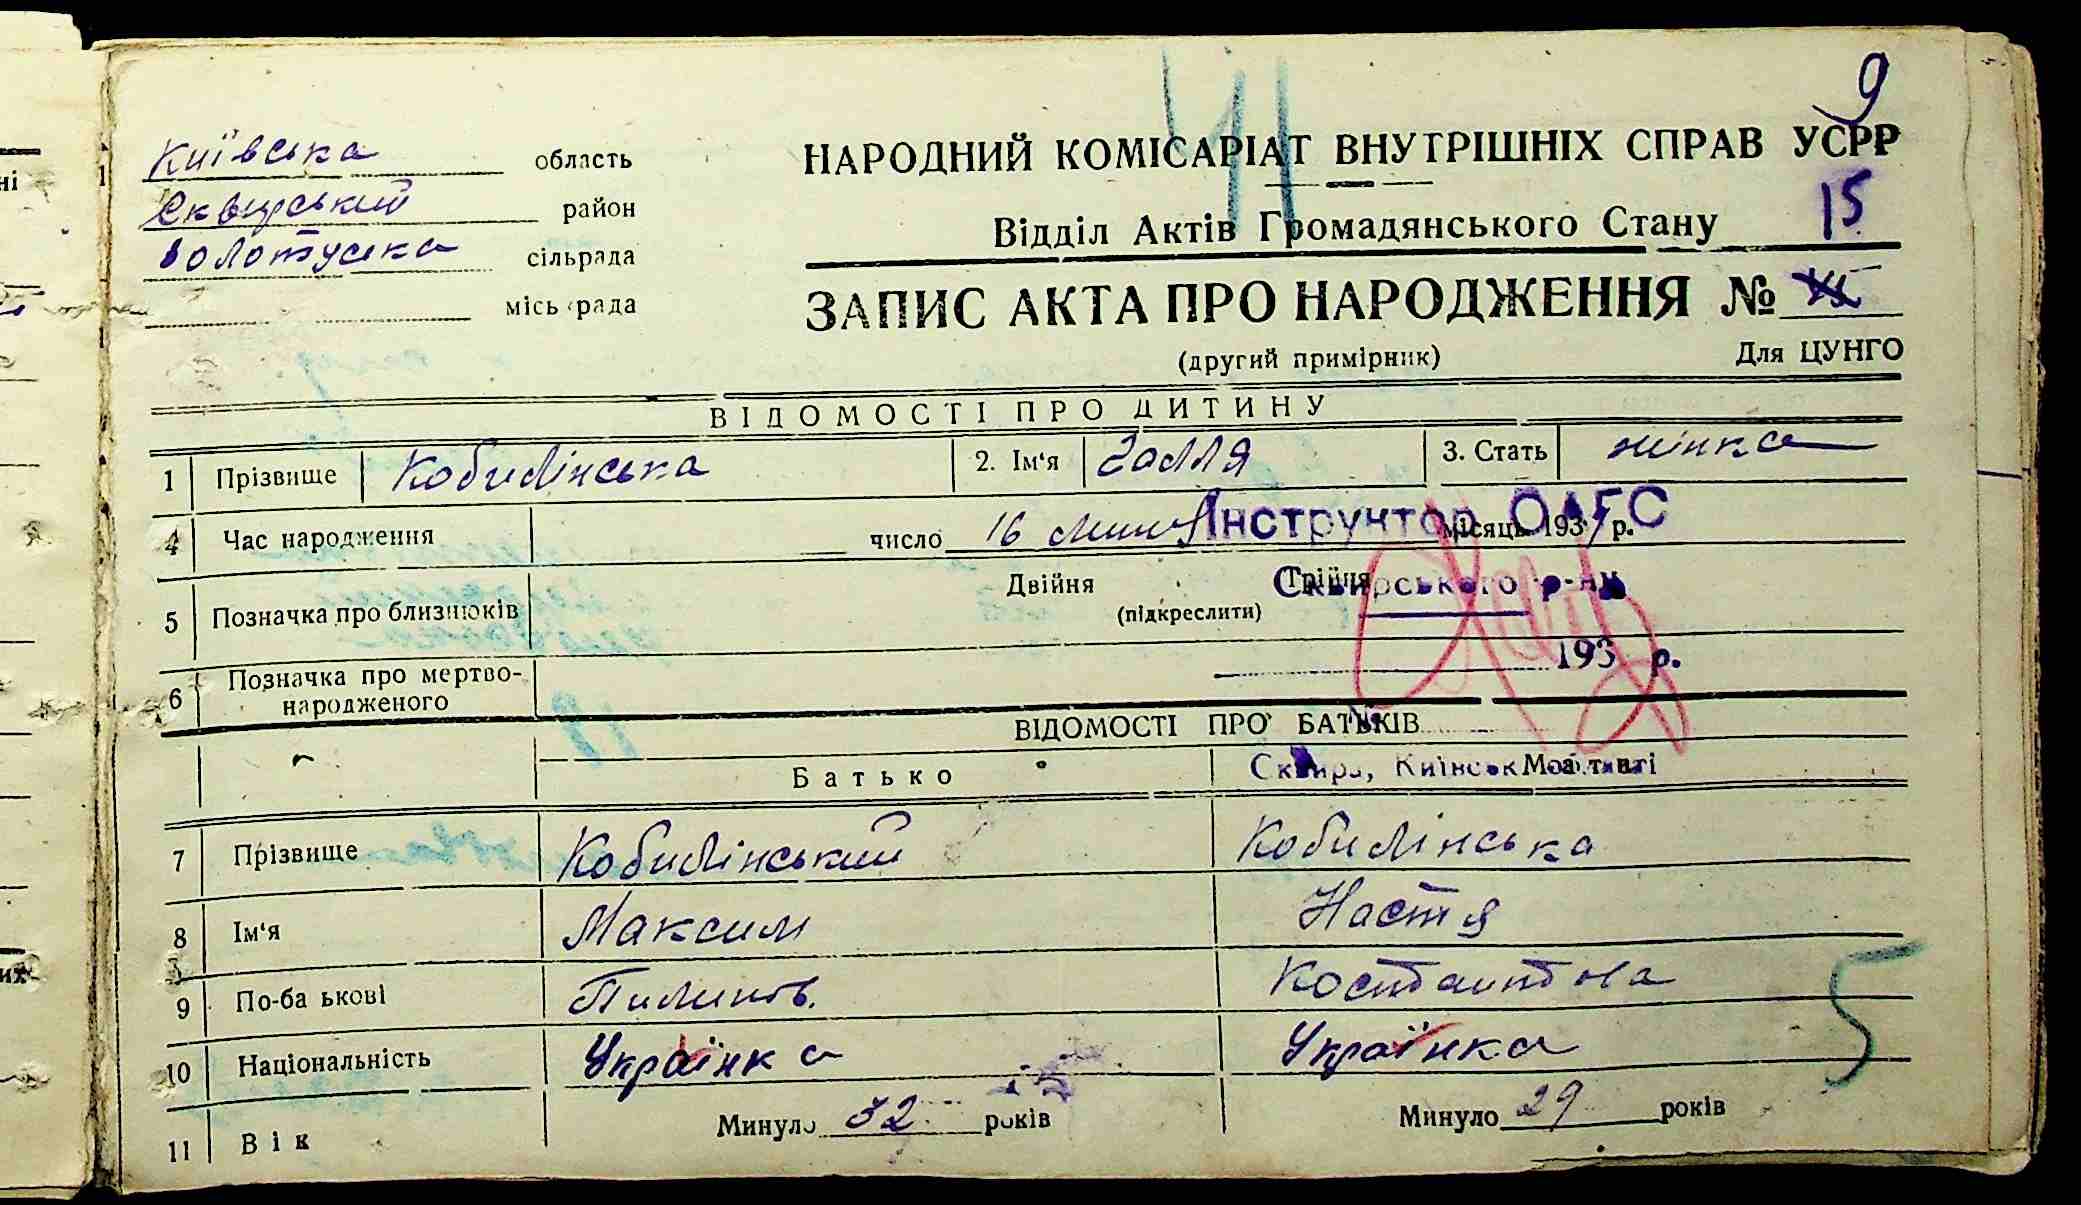 9
41
Київська область
НАРОДНИЙ КОМІСАРІАТ ВНУТРІШНІХ СПРАВ УСРР
Сквирський район
Відділ Актів Громадянського Стану 15
Золотушка сільрада
ЗАПИС АКТА ПРО НАРОДЖЕННЯ №
міськрада
(другий примірник) Для ЦУНГО
ВІДОМОСТІ ПРО ДИТИНУ
1 Прізвище Кобилінська 2. Ім'я Галля 3. Стать жінка
4 Час народження число 16 місяць 193 р.
Інструктор ОАГС
5 Позначка про близнюків Двійня Трійня
(підкреслити)
Сквирського р-ну
6 Позначка про мертво-
народженого
193 р.
ВІДОМОСТІ ПРО БАТЬКІВ
Батько Мати
Сквира, Київськ
7 Прізвище Кобилінський Кобилінська
8 Ім'я Максим Настя
9 По-ба ькові Пилипов. Костантова
10 Національність Українка Українка
11 Вік Минуло 32 років Минуло 29 років
5